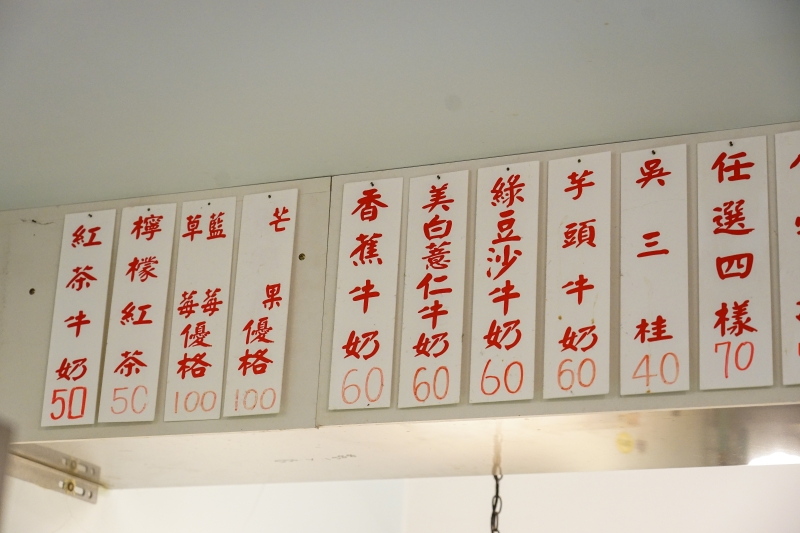 紅茶牛奶50
檸檬紅茶50
草莓藍莓優格100
芒果優格100
香蕉牛奶60
美白薏仁牛奶60
綠豆沙牛奶60
芋頭牛奶60
吳三桂40
任選四樣70